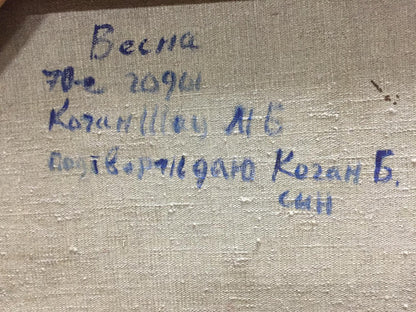 Весна
70-е годы
Коган Шоц М Б
подтверждаю Коган Б.
син